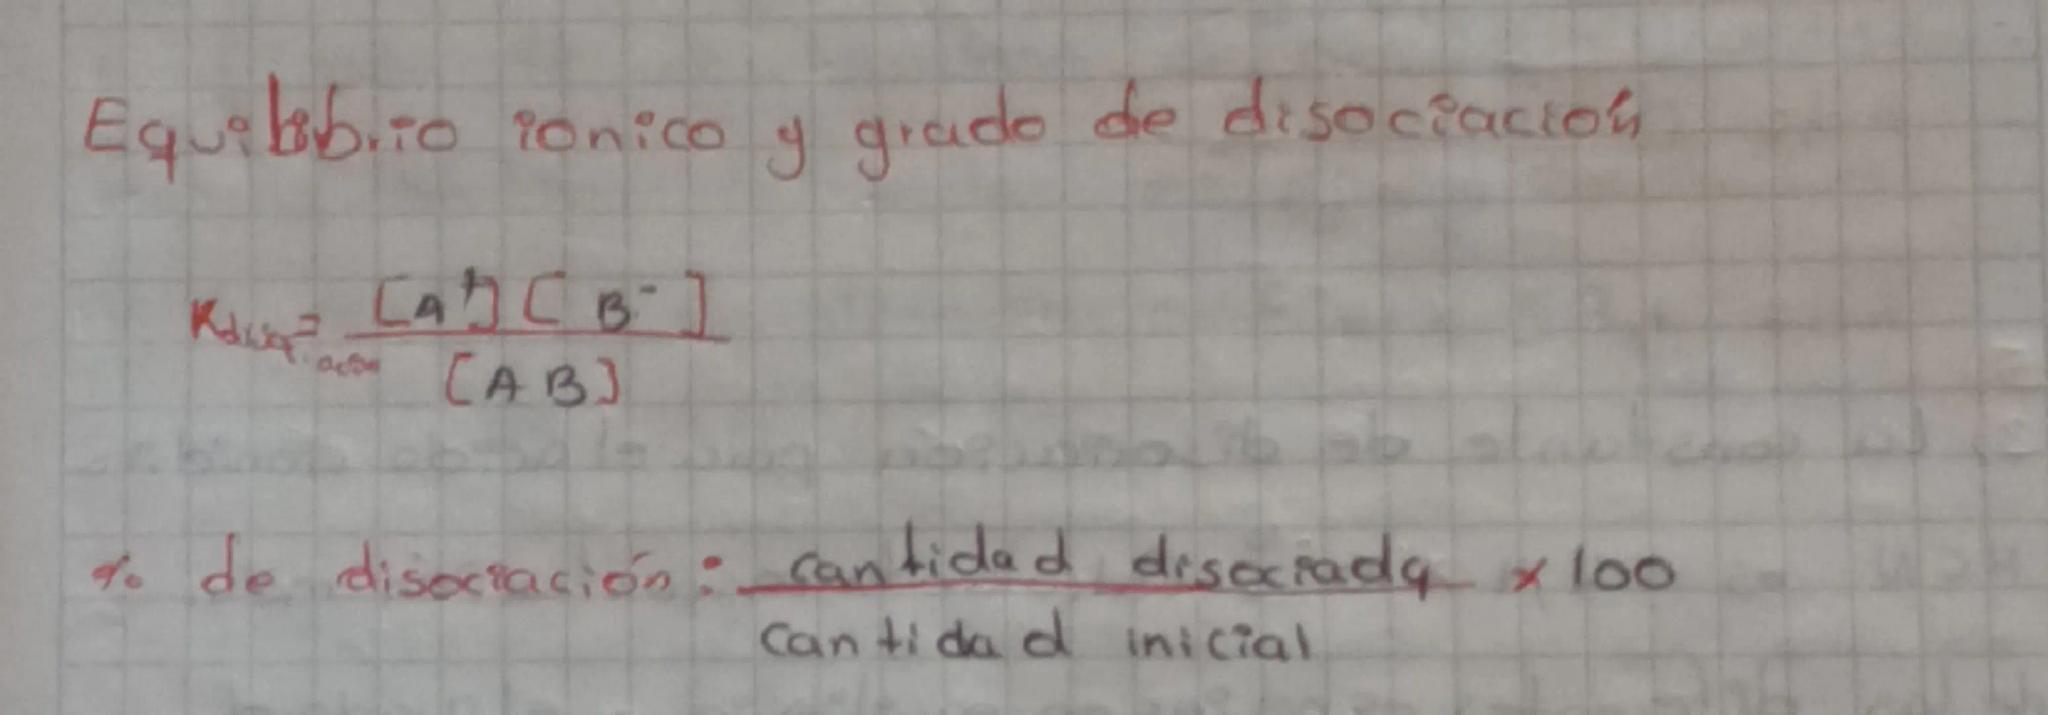 Equilibrio ionico y grado de disociación
Kdisociación = [A+] [B-]
[AB]
% de disociación: cantidad disociada x 100
cantidad inicial